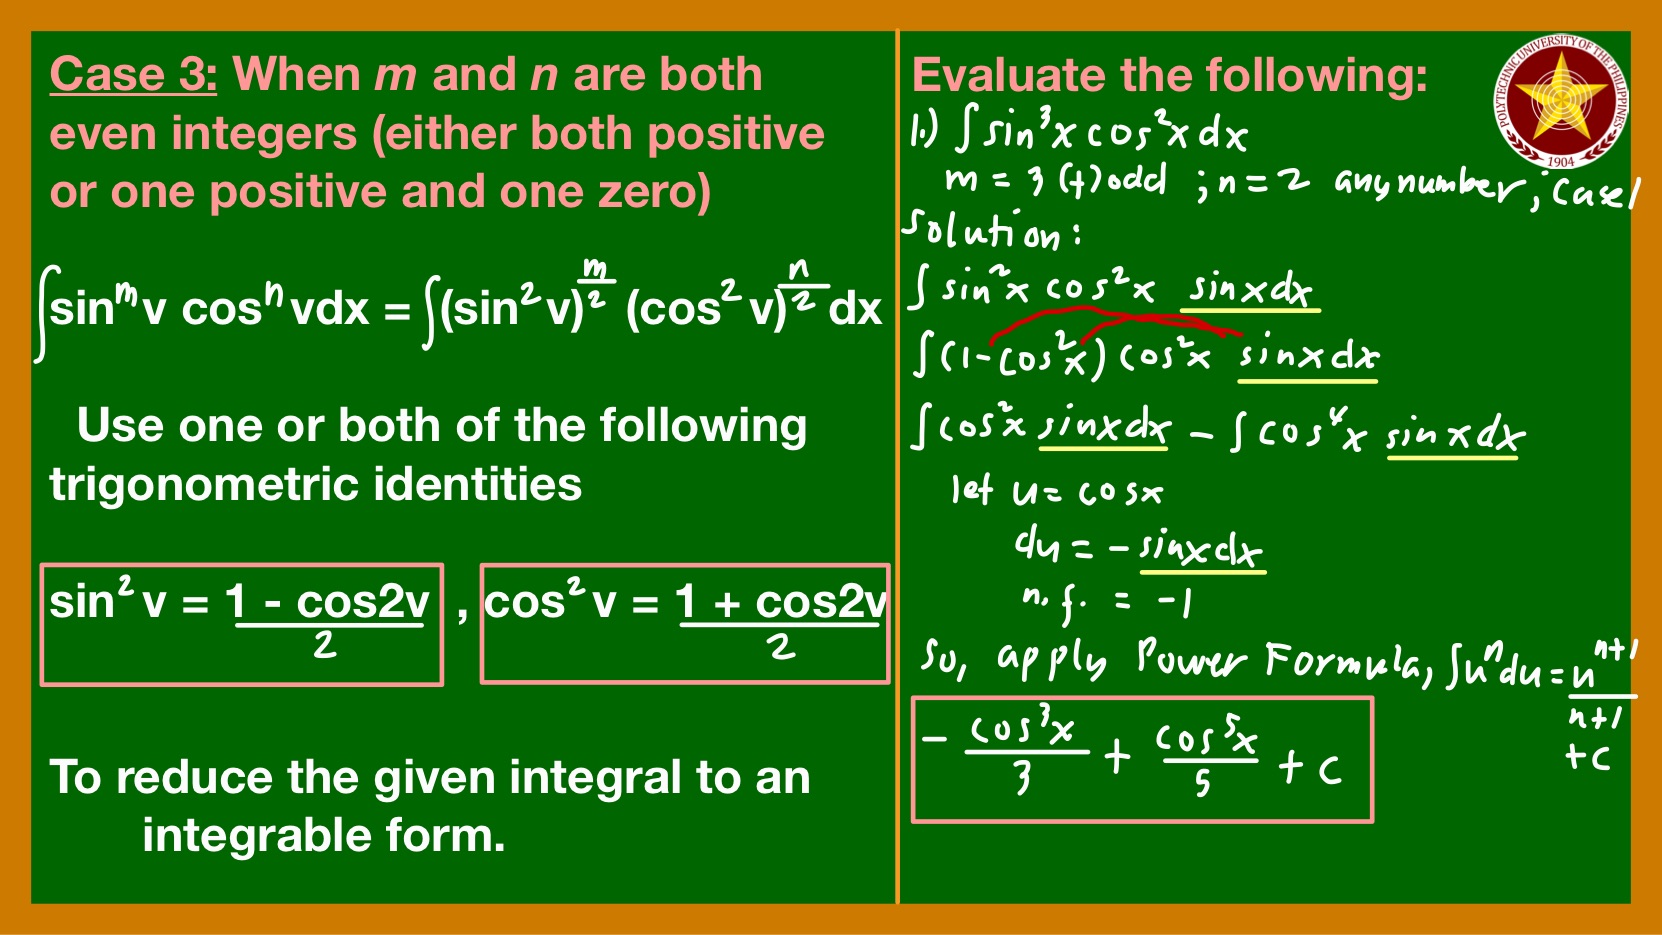 Case 3: When m and n are both
even integers (either both positive
or one positive and one zero)
∫sinᵐv cosⁿvdx = ∫(sin²v)^(m/2) (cos²v)^(n/2) dx
Use one or both of the following
trigonometric identities
sin²v = (1 - cos2v)/2 , cos²v = (1 + cos2v)/2
To reduce the given integral to an
integrable form.
Evaluate the following:
POLYTECHNIC UNIVERSITY OF THE PHILIPPINES
1904
1.) ∫sin³x cos²x dx
m = 3 (+) odd ; n = 2 any number ; case 1
Solution:
∫sin²x cos²x sinxdx
∫(1-cos²x) cos²x sinxdx
∫cos²x sinxdx - ∫cos⁴x sinxdx
let u = cosx
du = -sinxdx
n.f. = -1
So, apply Power Formula, ∫uⁿdu = uⁿ⁺¹/(n+1) + C
- cos³x/3 + cos⁵x/5 + C